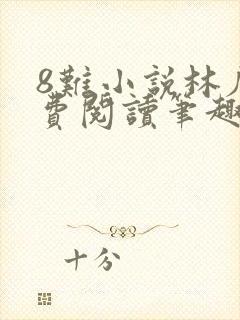 8難小説林
費閱讀筆趣
十分